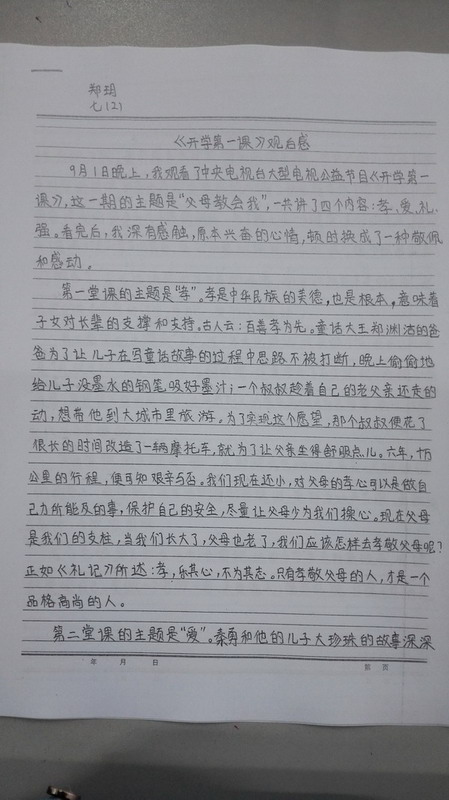 郑玥
七(2)
《开学第一课》观后感
9月1日晚上,我观看了中央电视台大型电视公益节目《开学第一
课》,这一期的主题是“父母教会我”,一共讲了四个内容:孝、爱、礼、
强。看完后,我深有感触,原本兴奋的心情,顿时换成了一种敬佩
和感动。
第一堂课的主题是“孝”。孝是中华民族的美德,也是根本,意味着
子女对长辈的支撑和支持。古人云:百善孝为先。童话大王郑渊洁的爸
爸为了让儿子在写童话故事的过程中思路不被打断,晚上偷偷地
给儿子没墨水的钢笔吸好墨汁;一个叔叔趁着自己的老父亲还走的
动,想带他到大城市里旅游。为了实现这个愿望,那个叔叔便花了
很长的时间改造了一辆摩托车,就为了让父亲坐得舒服点儿。六年,十万
公里的行程,便可知艰辛与否。我们现在还小,对父母的孝心可以是做自
己力所能及的事,保护自己的安全,尽量让父母少为我们操心。现在父母
是我们的支柱,当我们长大了,父母也老了,我们应该怎样去孝敬父母呢?
正如《礼记》所述:孝,乐其心,不为其志。只有孝敬父母的人,才是一个
品格高尚的人。
第二堂课的主题是“爱”。秦勇和他的儿子大珍珠的故事深深
年 月 日
第 页